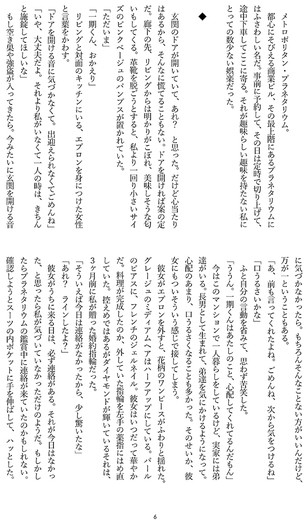 メトロポリタン・プラネタリウム。
都心にそびえる商業ビル、その最上階にあるプラネタリウムに
はふさわしい名だ。事前に予約して、その日は定時で切り上げて、
途中下車してここに寄る。それが趣味らしい趣味を持たない私に
とっての数少ない娯楽だった。
◆
玄関のドアが開いていて、あれ？ と思った。だけど心当たり
はあるから、そんなに慌てることもない。ドアを開ければ案の定
だ。廊下の先、リビングからは明かりがこぼれ、美味しそうな匂
いもしてくる。革靴を脱ごうとすると、私より一回り小さいサイ
ズのピンクベージュのパンプスが置かれていた。
「ただいま」
「一期くん、おかえり」
リビングと対面のキッチンにいる、エプロンを身につけた女性
と言葉をかわす。
「ドアを開ける音に気づかなくて。出迎えられなくてごめんね」
「いや、大丈夫だよ。それより私がいなくて一人の時は、きちん
と施錠してほしいな」
もし空き巣や強盗が入ってきたら。今みたいに玄関を開ける音
に気づかなかったら。もちろんそんなことない方がいいんだけど、
万が一ということもある。
「あ、前も言ってくれたよね。ごめんね、次から気をつけるね」
「口うるさいかな」
ふと自分の言動を省みて、思わず苦笑した。
「ううん。一期くんはあたしのこと、心配してくれてるんだもん」
今はこのマンションで一人暮らしをしているけど、実家には弟
達がいる。長男として生まれて、弟達を気にかけるようになって。
心配のあまり、口うるさくなることも多かった。そのせいか、彼
女にもついそういう感じで接してしまう。
彼女がエプロンを外すと、花柄のワンピースがふわりと揺れた。
グレージュのミディアムヘアはハーフアップにしている。パール
のピアスに、フレンチのジェルネイル。彼女はいつだって華やか
だ。料理が完成したのか、外していた指輪を左手の薬指にはめ直
していた。控えめではあるがダイヤモンドが輝いているそれは、
３ヶ月前に私が贈った婚約指輪だった。
「そういえば今日は連絡がなかったから、少し驚いたな」
「あれ？ ラインしたよ？」
彼女がうちに来る日は、必ず連絡がある。それが今日はなかっ
た、と思ったら私が気づいていなかっただけのようだ。もしかし
たらプラネタリウムの鑑賞中に連絡が来ていたのかもしれない。
確認しようとスーツの内ポケットに手を伸ばして、ハッとした。
6